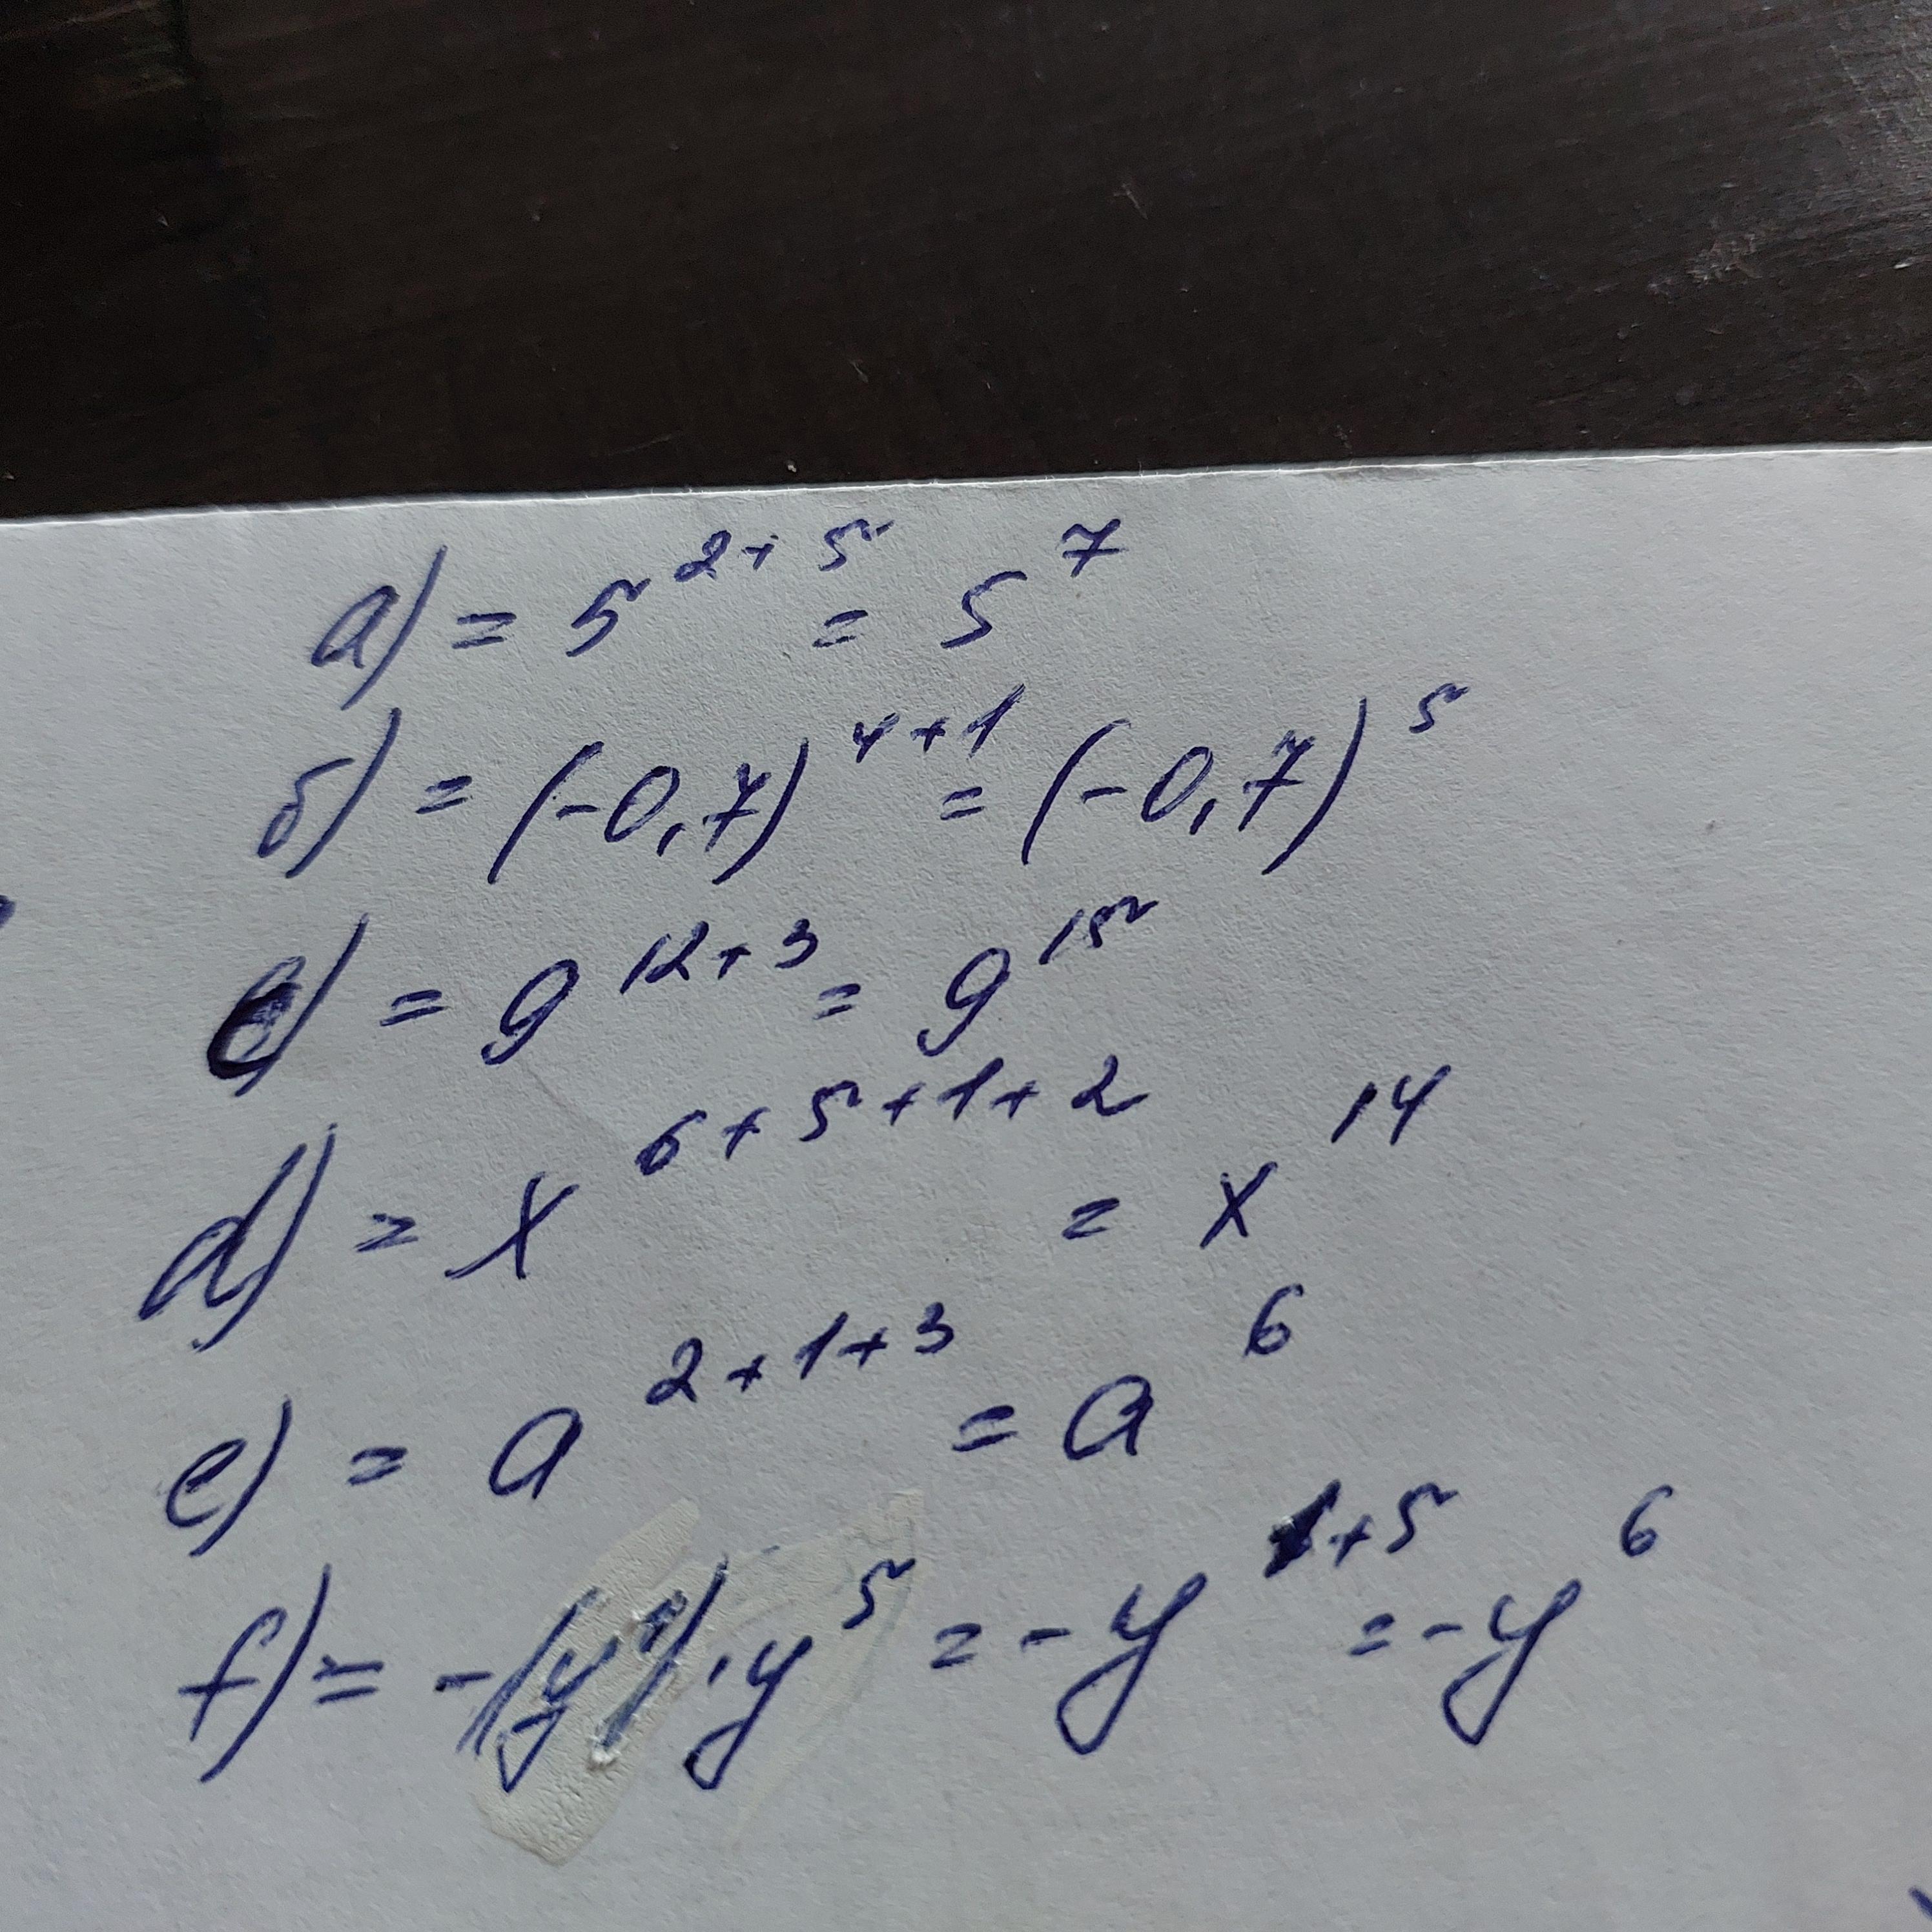 a) = 5^{2+5} = 5^7
б) = (-0,7)^{4+1} = (-0,7)^5
c) = 9^{12+3} = 9^{15}
d) = x^{6+5+1+2} = x^{14}
e) = a^{2+1+3} = a^6
f) = -(y^1)·y^5 = -y^{1+5} = -y^6